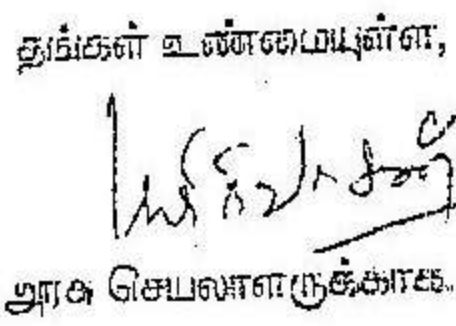 தங்கள் உண்மையுள்ள,
அரசு செயலாளருக்காக.